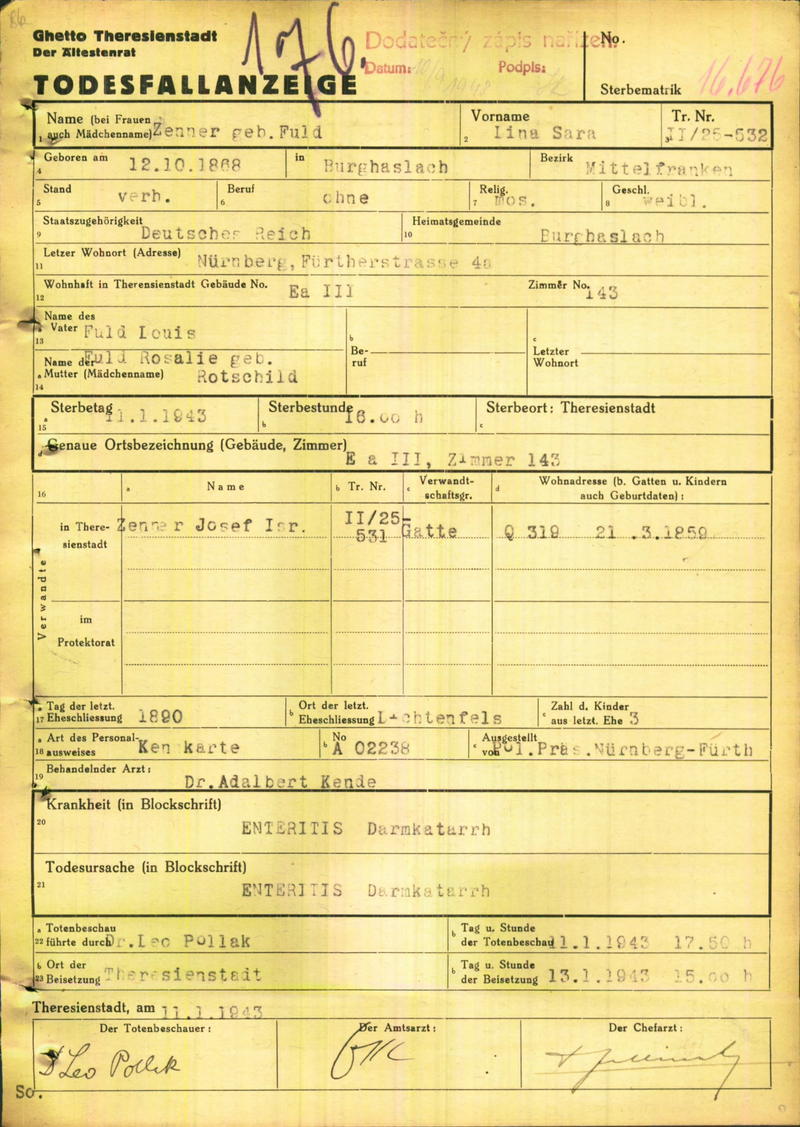 Ghetto Theresienstadt
Der Ältestenrat
TODESFALLANZEIGE
176.
Dodatečný zápis nařízen.
Datum:
Podpis:
No.
Sterbematrik 16.676
Name (bei Frauen
1 auch Mädchenname) Zenner geb. Fuld
Vorname
2 Lina Sara
Tr. Nr.
3 II/25-532
Geboren am
4 12.10.1868
in Burghaslach
Bezirk Mittelfranken
Stand
5 verh.
Beruf
6 ohne
Relig.
7 mos.
Geschl.
8 weibl.
Staatszugehörigkeit
9 Deutsches Reich
Heimatsgemeinde
10 Burghaslach
Letzer Wohnort (Adresse)
11 Nürnberg, Fürtherstrasse 4a
Wohnhaft in Theresienstadt Gebäude No.
12 Ea III
Zimmer No. 143
Name des
a Vater Fuld Louis
13
Name der Fuld Rosalie geb.
a Mutter (Mädchenname) Rotschild
14
b
Be-
ruf
c
Letzter
Wohnort
Sterbetag 11.1.1943
a
15
Sterbestunde 16.00 h
b
Sterbeort: Theresienstadt
c
d Genaue Ortsbezeichnung (Gebäude, Zimmer)
E a III, Zimmer 143
16
a Name
b Tr. Nr.
c Verwandt-
schaftsgr.
d Wohnadresse (b. Gatten u. Kindern
auch Geburtdaten):
Verwandte
in There-
sienstadt
Zenner Josef Isr.
II/25-
531
Gatte
Q 319 21.3.1859
im
Protektorat
a Tag der letzt.
17 Eheschliessung 1890
b Ort der letzt.
Eheschliessung Lichtenfels
c Zahl d. Kinder
aus letzt. Ehe 3
a Art des Personal-
18 ausweises Ken karte
b No
A 02238
c Ausgestellt
von Pol.Präs.Nürnberg-Fürth
Behandelnder Arzt:
19 Dr.Adalbert Kende
Krankheit (in Blockschrift)
20 ENTERITIS Darmkatarrh
Todesursache (in Blockschrift)
21 ENTERITIS Darmkatarrh
a Totenbeschau
22 führte durch Dr.Leo Pollak
b Tag u. Stunde
der Totenbeschau 11.1.1943 17.50 h
b Ort der
23 Beisetzung Theresienstadt
b Tag u. Stunde
der Beisetzung 13.1.1943 15.00 h
Theresienstadt, am 11.1.1943
Der Totenbeschauer:
Der Amtsarzt:
Der Chefarzt:
Dr Leo Pollak
So.